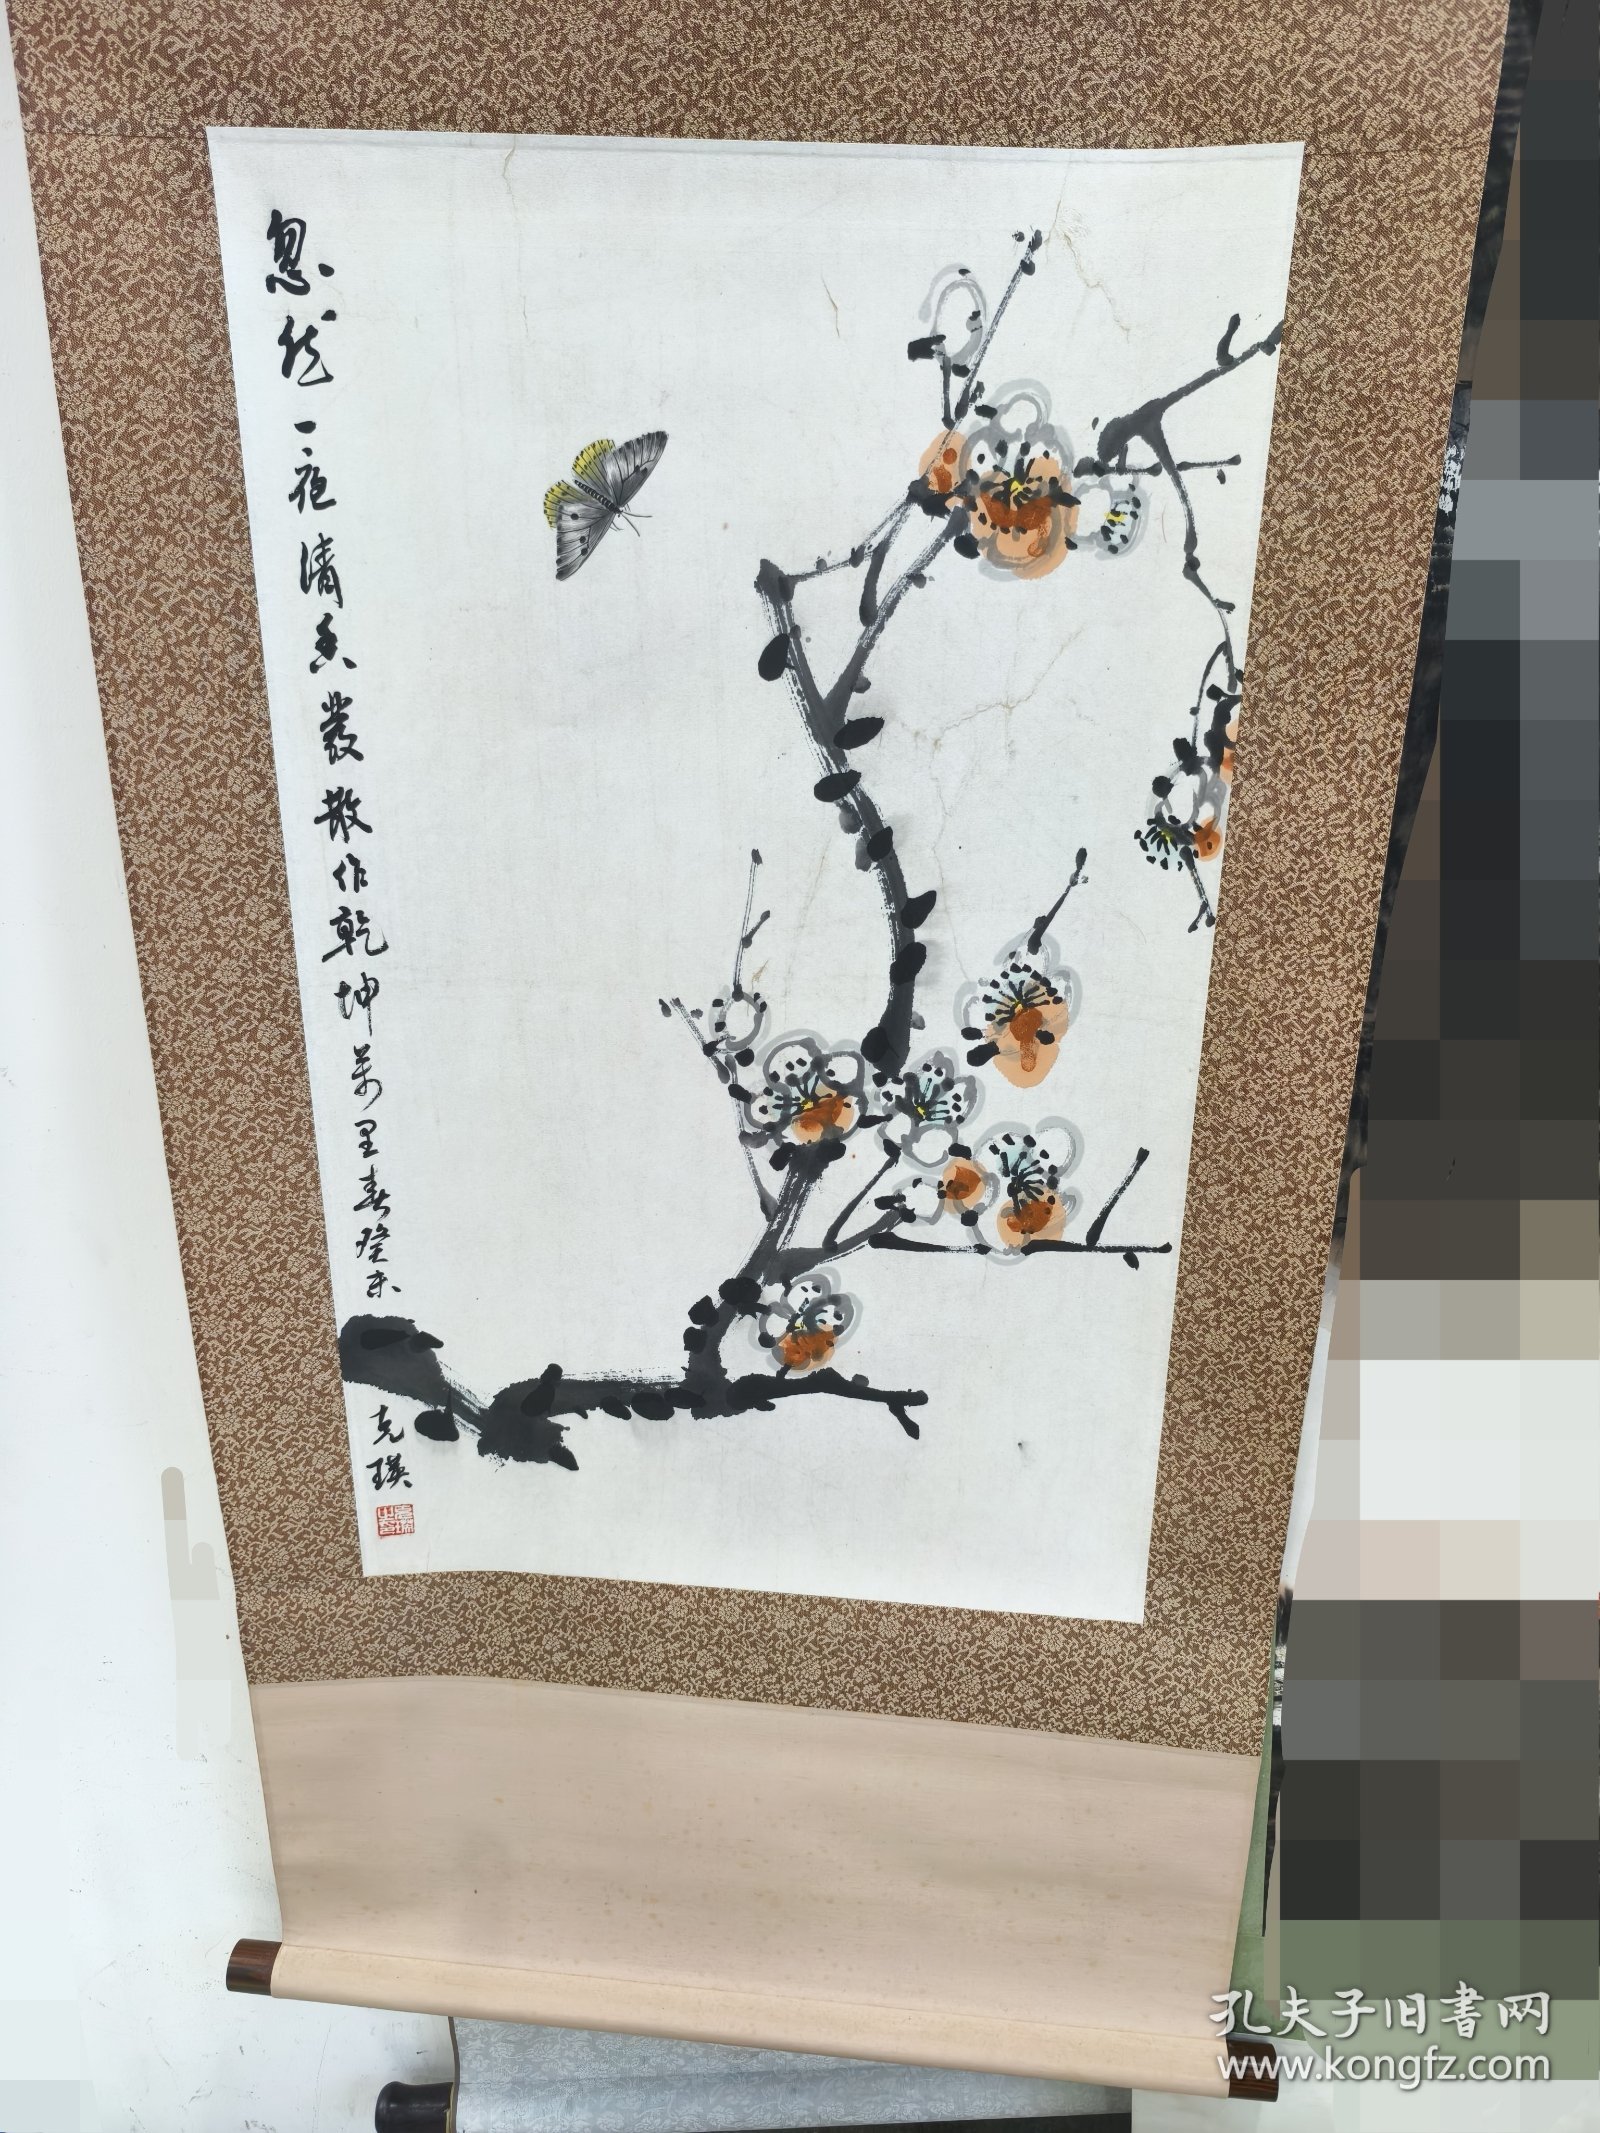 忽然一夜清香發散作乾坤萬里春癸未
克瑛
孔夫子旧书网
www.kongfz.com